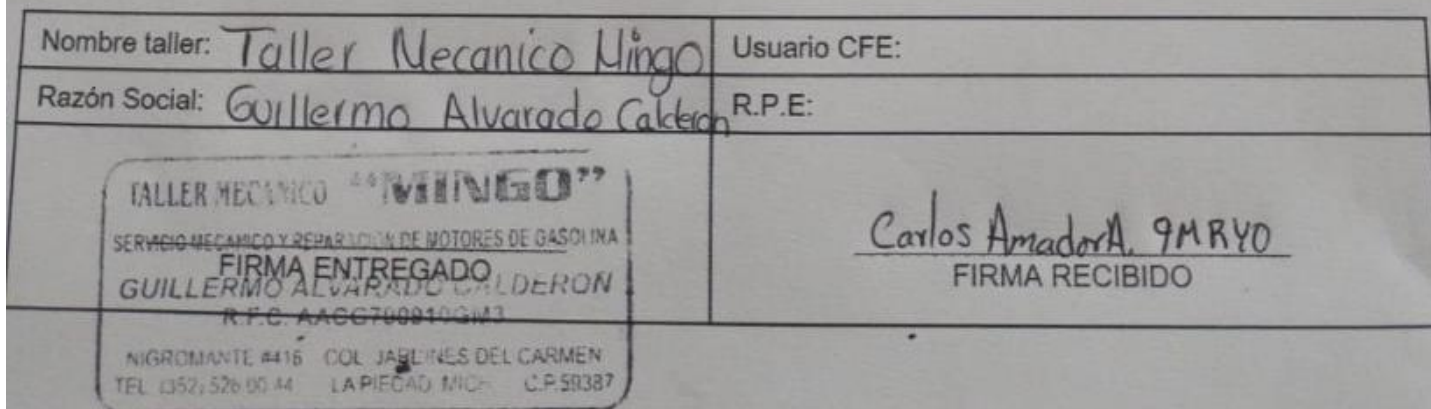 Nombre taller: Taller Mecanico Mingo
Usuario CFE:
Razón Social: Guillermo Alvarado Calderon
R.P.E:
TALLER MECANICO "MINGO"
SERVICIO MECANICO Y REPARACION DE MOTORES DE GASOLINA
FIRMA ENTREGADO
GUILLERMO ALVARADO CALDERON
R.F.C.
NIGROMANTE #416 COL. JARDINES DEL CARMEN
TEL. (352) 526 00 44 LA PIEDAD, MICH. C.P. 59387
Carlos Amador A. 9MRY0
FIRMA RECIBIDO